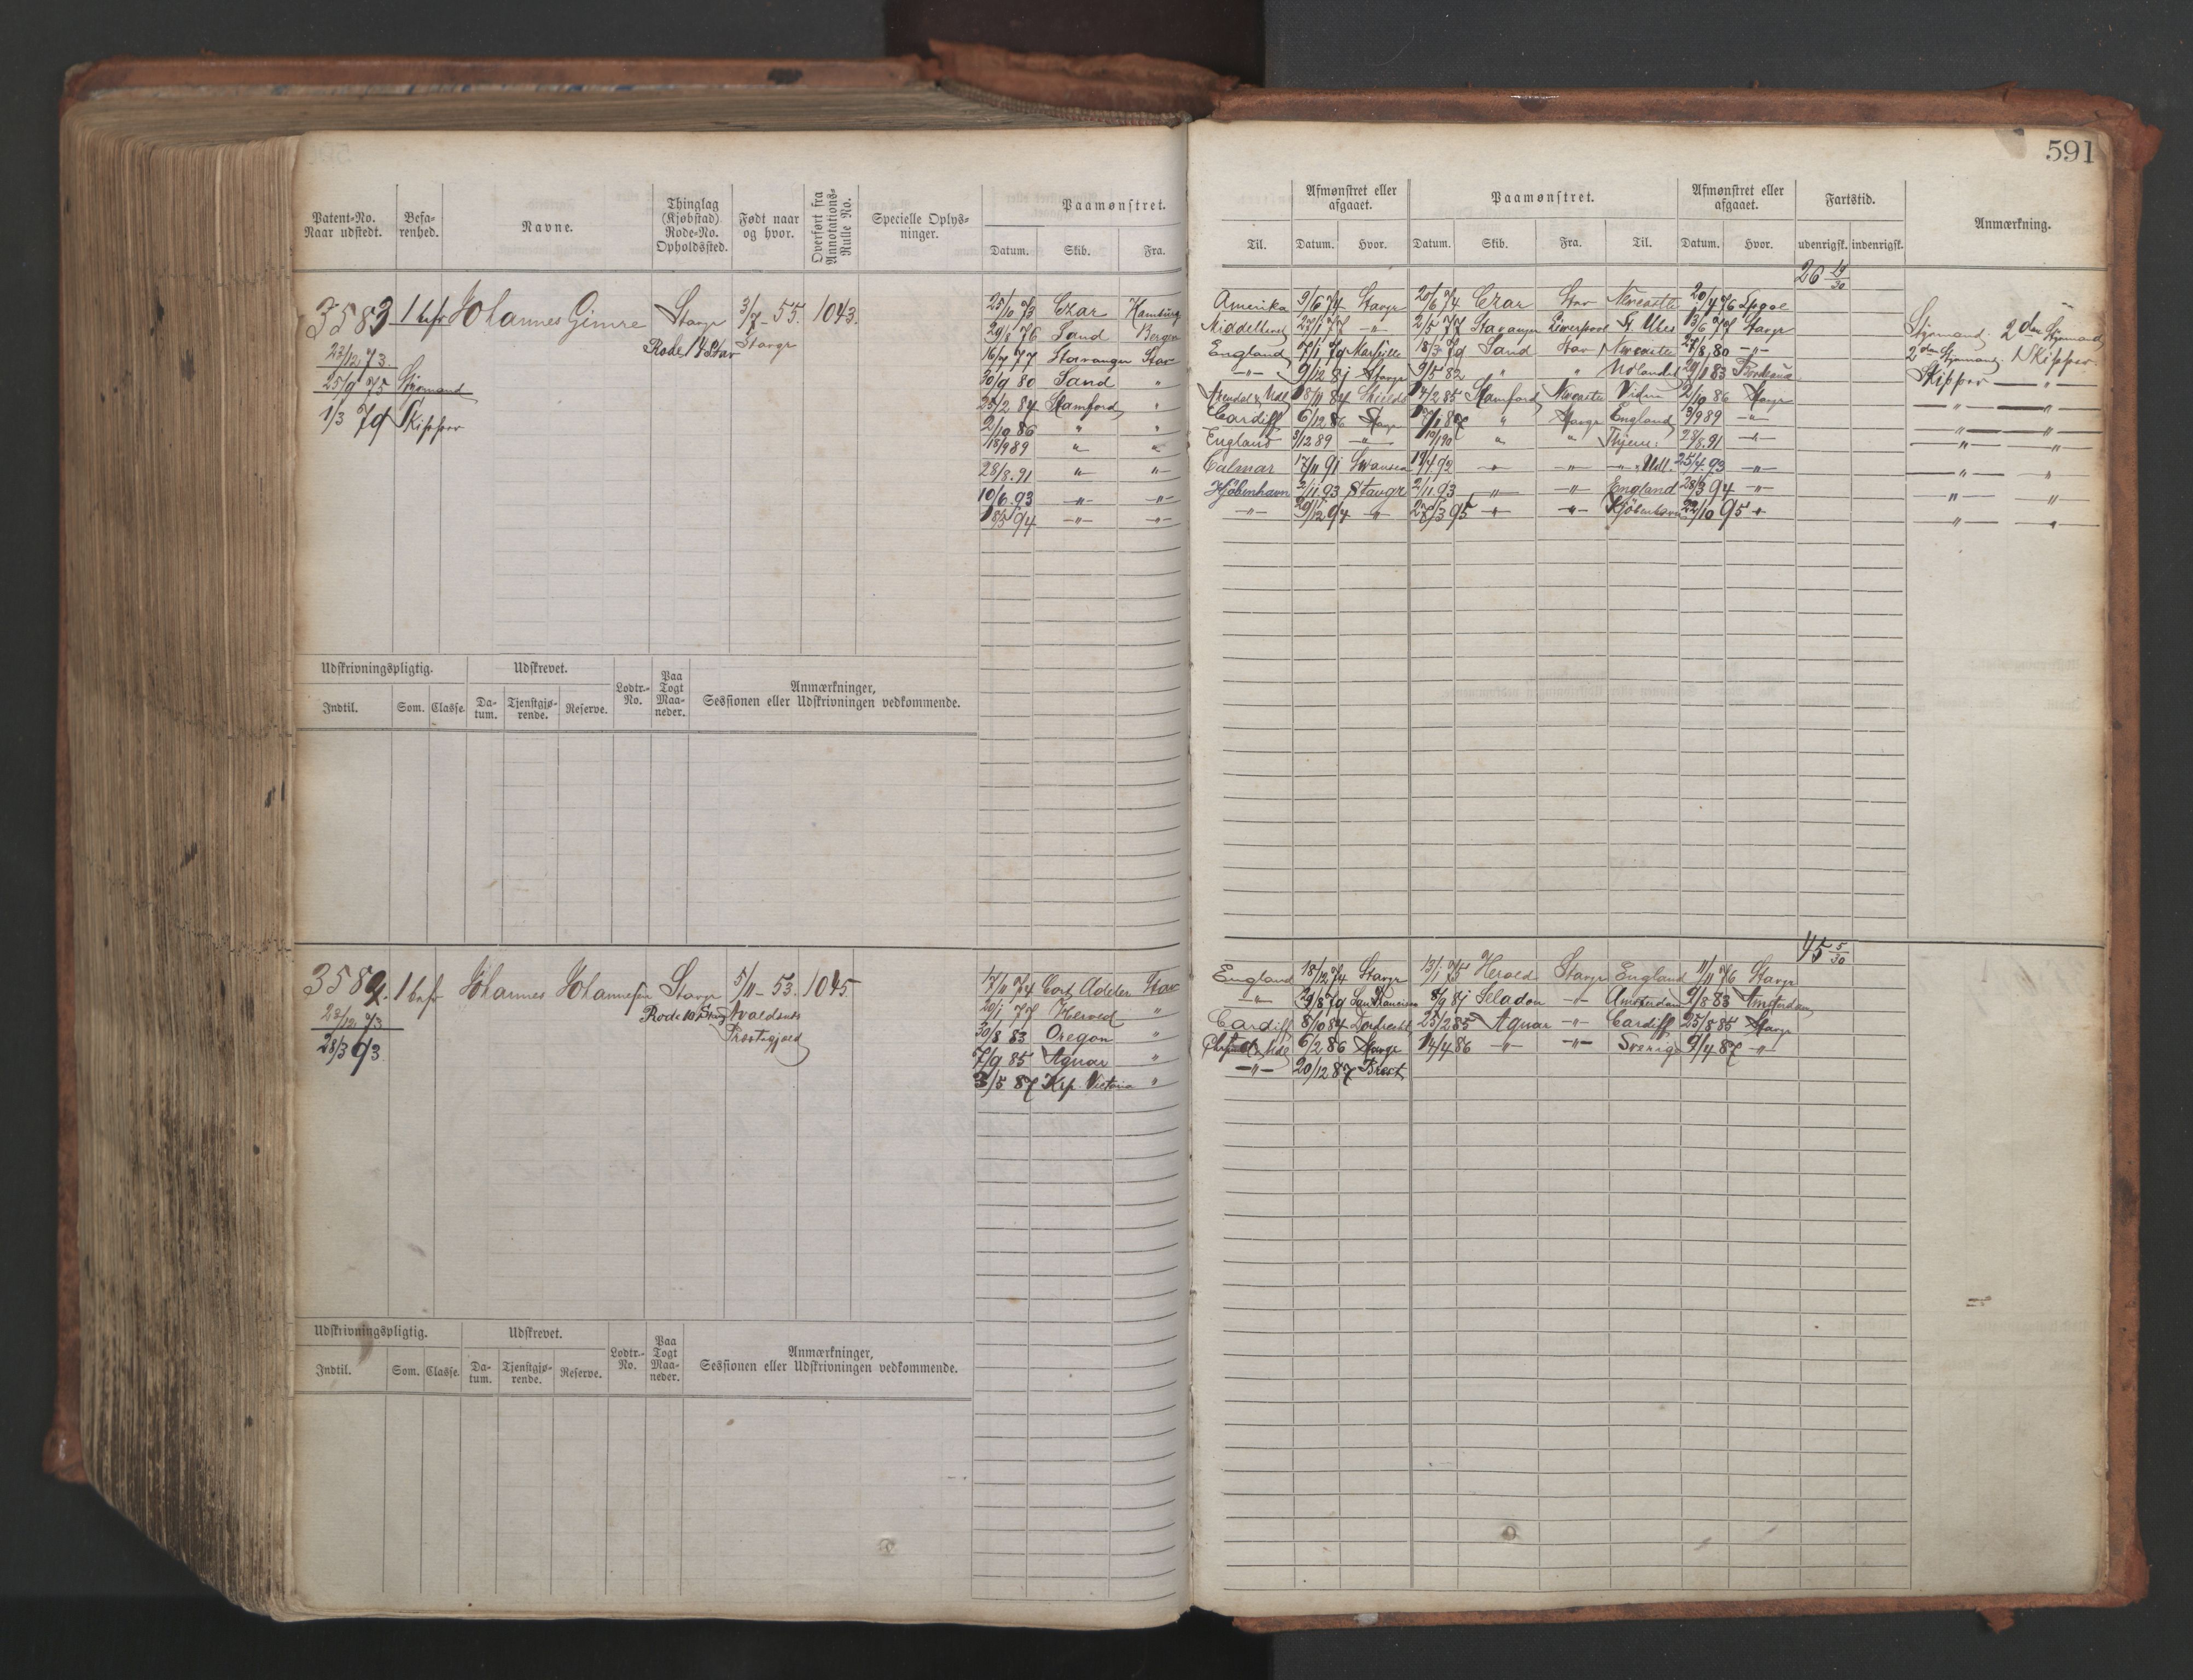 591
Patent-No. Naar udstedt.
Befarenhed.
Navne.
Thinglag (Kjøbstad) Rode-No. Opholdssted.
Født naar og hvor.
Overført fra Annotations-Rulle No.
Specielle Oplysninger.
Paamønstret.
Datum. Skib. Fra.
Til.
Afmønstret eller afgaaet.
Datum. Hvor.
Paamønstret.
Datum. Skib. Fra. Til.
Afmønstret eller afgaaet.
Datum. Hvor.
Fartstid.
udenrigsk. indenrigsk.
Anmærkning.
3583 1 bfr Johannes Gimre Stavgr 3/7-55. 1043.
Rode 14 Stav Stavgr
23/12 73.
25/9 75 Styrmand
1/3 79 Skipper
26 19/30
25/10 73 Czar Hamburg Amerika 9/6 74 Stavgr 20/6 74 Czar Stav Newcastle 20/4 76
29/8 76 Sand Bergen 27/1 77 -"- 2/5 77 Stavanger Liverpool St. Ubes 13/6 77 Stavgr
16/7 77 Stavanger Stav England 7/1 79 Marseille 18/3 79 Sand Stav Newcastle 27/8 80 -"-
30/9 80 Sand " -"- 9/12 81 Stavgr 9/5 82 " " 29/1 83 Bordeaux
25/2 84 Stamford " Arendal & Udl 18/11 84 Shields 14/2 85 Stamford Newcastle 2/10 86 Stavgr
2/10 86 " " Cardiff 6/12 86 Stavgr " Stavgr England 3/9 89 -"-
18/9 89 " " England 9/12 89 -"- " " 28/8.91 -"-
28/8.91 -"- -"- Calmar 17/11 91 Swansea 19/4 92 -"- -"- -"- Udl. 25/4.93 -"-
10/6.93 -"- -"- Kjöbenhavn 2/11.93 Stavgr 2/11.93 -"- -"- England 28/3 94 -"-
18/5 94 -"- -"- -"- 29/12 94 -"- 27/3 95 -"- -"- Kjöbenhavn 22/10 95 -"-
Styrmand. 2den Styrmand
2den Styrmand. Skipper
Skipper -"-
Udskrivningspligtig.
Indtil. Som. Classe.
Udskrevet.
Datum. Tjenstgjørende. Reserve.
Lodtr.-No.
Paa Togt Maaneder.
Anmærkninger, Sessionen eller Udskrivningen vedkommende.
3584. 1 bfr Johannes Johannesen Stavgr 5/11-53. 1045.
Rode 10 Stavgr Avaldsnes
Præstegjæld
23/12 73
28/3 93.
45 5/30
17/11 74 Cort Adeler Stav England 18/12 74 Stavgr 13/1 75 Herold Stavgr England 11/11 76 Stavgr
20/1 77 Herold " -"- 29/8 79 San Francisco 8/9 81 Seladon -"- Amsterdam 9/8 83 Amsterdam
30/8 83 Oregon " Cardiff 8/10 84 Dordrecht 25/2 85 Aquar -"- Cardiff 25/5 85 Stavgr
7/9 85 Aquar " 6/2 86 Stavgr 14/4 86 -"- -"- Sverige 9/4 87 -"-
3/5 87 Krp. Victoria " -"- 20/12 87 Brest
Udskrivningspligtig.
Indtil. Som. Classe.
Udskrevet.
Datum. Tjenstgjørende. Reserve.
Lodtr.-No.
Paa Togt Maaneder.
Anmærkninger, Sessionen eller Udskrivningen vedkommende.